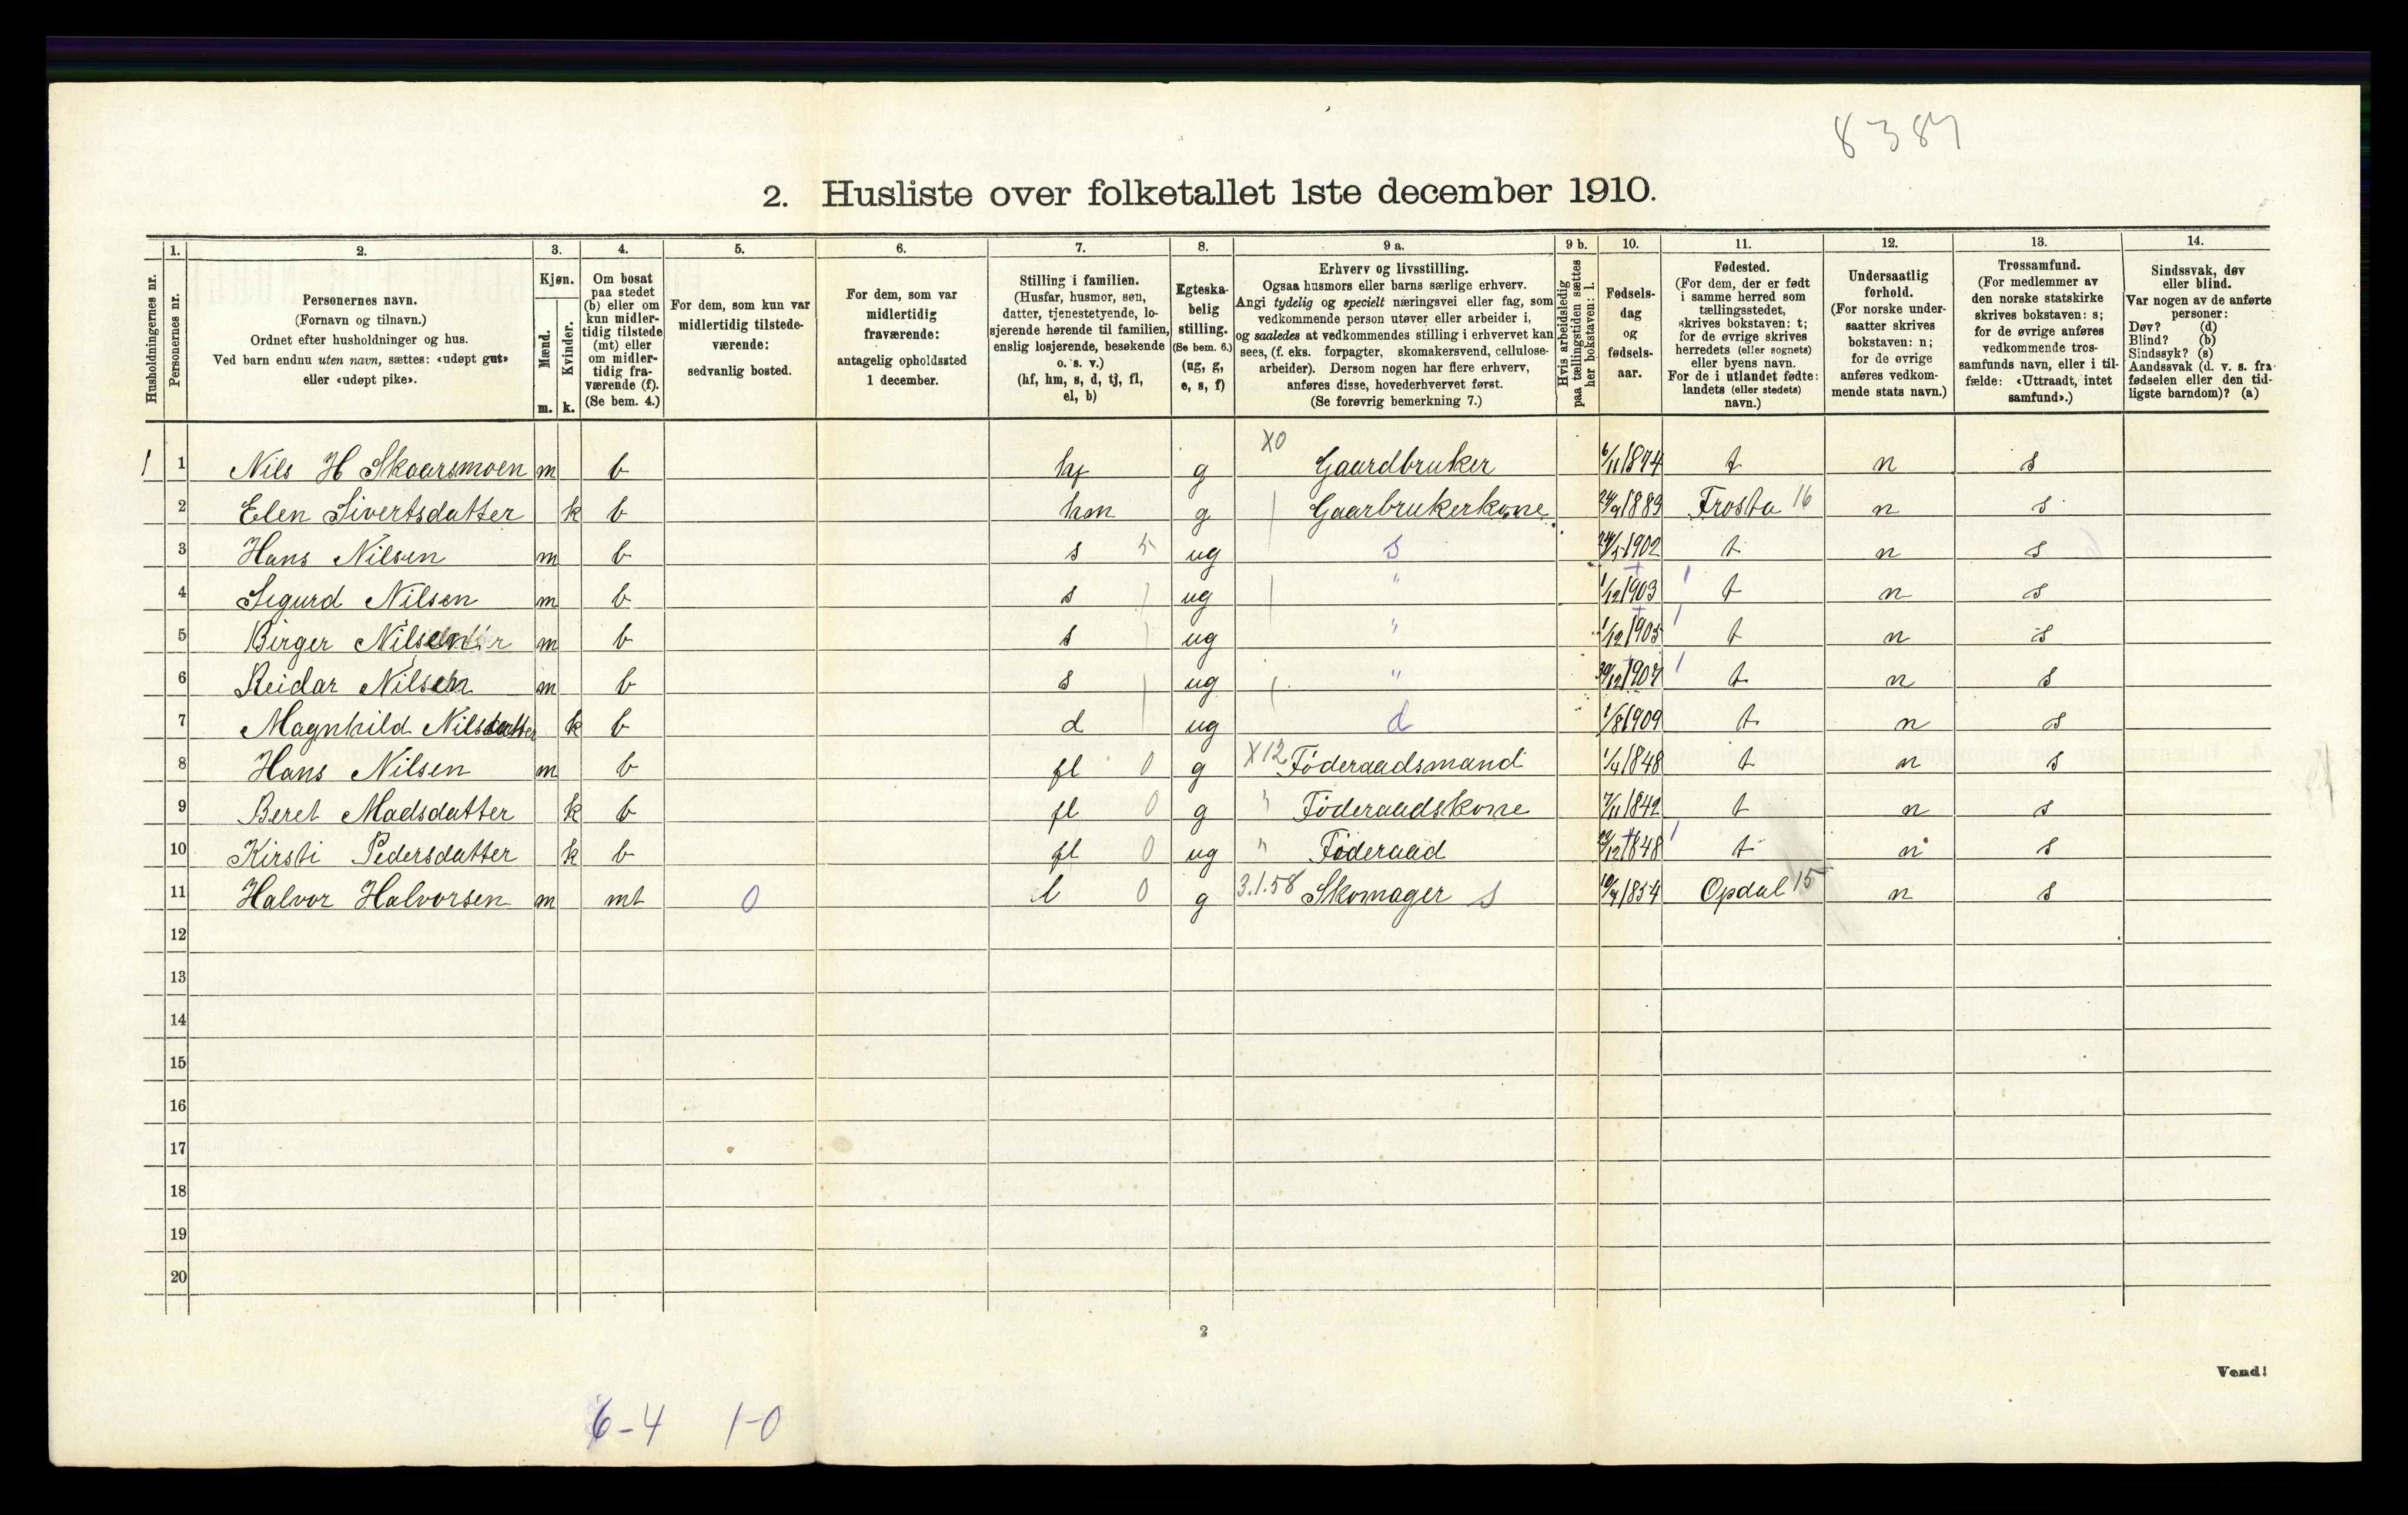 8387
2. Husliste over folketallet 1ste december 1910.
Husholdningernes nr.
1.
Personernes nr.
2.
Personernes navn.
(Fornavn og tilnavn.)
Ordnet efter husholdninger og hus.
Ved barn endnu uten navn, sættes: «udøpt gut»
eller «udøpt pike».
3.
Kjøn.
Mænd.
Kvinder.
m. k.
4.
Om bosat
paa stedet
(b) eller om
kun midler-
tidig tilstede
(mt) eller
om midler-
tidig fra-
værende (f).
(Se bem. 4.)
5.
For dem, som kun var
midlertidig tilstede-
værende:
sedvanlig bosted.
6.
For dem, som var
midlertidig
fraværende:
antagelig opholdssted
1 december.
7.
Stilling i familien.
(Husfar, husmor, søn,
datter, tjenestetyende, lo-
sjerende hørende til familien,
enslig losjerende, besøkende
o. s. v.)
(hf, hm, s, d, tj, fl,
el, b)
8.
Egteska-
belig
stilling.
(Se bem. 6.)
(ug, g,
e, s, f)
9 a.
Erhverv og livsstilling.
Ogsaa husmors eller barns særlige erhverv.
Angi tydelig og specielt næringsvei eller fag, som
vedkommende person utøver eller arbeider i,
og saaledes at vedkommendes stilling i erhvervet kan
sees, (f. eks. forpagter, skomakersvend, cellulose-
arbeider). Dersom nogen har flere erhverv,
anføres disse, hovederhvervet først.
(Se forøvrig bemerkning 7.)
9 b.
Hvis arbeidsledig
paa tællingstiden sættes
her bokstaven: l.
10.
Fødsels-
dag
og
fødsels-
aar.
11.
Fødested.
(For dem, der er født
i samme herred som
tællingsstedet,
skrives bokstaven: t;
for de øvrige skrives
herredets (eller sognets)
eller byens navn.
For de i utlandet fødte:
landets (eller stedets)
navn.)
12.
Undersaatlig
forhold.
(For norske under-
saatter skrives
bokstaven: n;
for de øvrige
anføres vedkom-
mende stats navn.)
13.
Trossamfund.
(For medlemmer av
den norske statskirke
skrives bokstaven: s;
for de øvrige anføres
vedkommende tros-
samfunds navn, eller i til-
fælde: «Uttraadt, intet
samfund».)
14.
Sindssvak, døv
eller blind.
Var nogen av de anførte
personer:
Døv? (d)
Blind? (b)
Sindssyk? (s)
Aandssvak (d. v. s. fra
fødselen eller den tid-
ligste barndom)? (a)
1 1 Nils H Skaarsmoen m b hf g X0 Gaardbruker 6/11 1874 t n s
2 Elen Sivertsdatter k b hm g Gaarbrukerkone 24/9 1889 Frosta 16 n s
3 Hans Nilsen m b s 5 ug s 24/5 1902 t n s
4 Sigurd Nilsen m b s ug " 1/12 1903 1 t n s
5 Birger Nilsen m b s ug " 1/12 1905 1 t n s
6 Reidar Nilsen m b s ug " 30/12 1907 1 t n s
7 Magnhild Nilsdatter k b d ug d 1/8 1909 t n s
8 Hans Nilsen m b fl 0 g X12 Føderaadsmand 1/4 1848 t n s
9 Beret Madsdatter k b fl 0 g " Føderaadskone 7/11 1842 t n s
10 Kirsti Pedersdatter k b fl 0 ug " Føderaad 23/12 1848 1 t n s
11 Halvor Halvorsen m mt 0 l 0 g 3.1.58 Skomager s 10/9 1854 Opdal 15 n s
12
13
14
15
16
17
18
19
20
2
Vend!
6-4 1-0